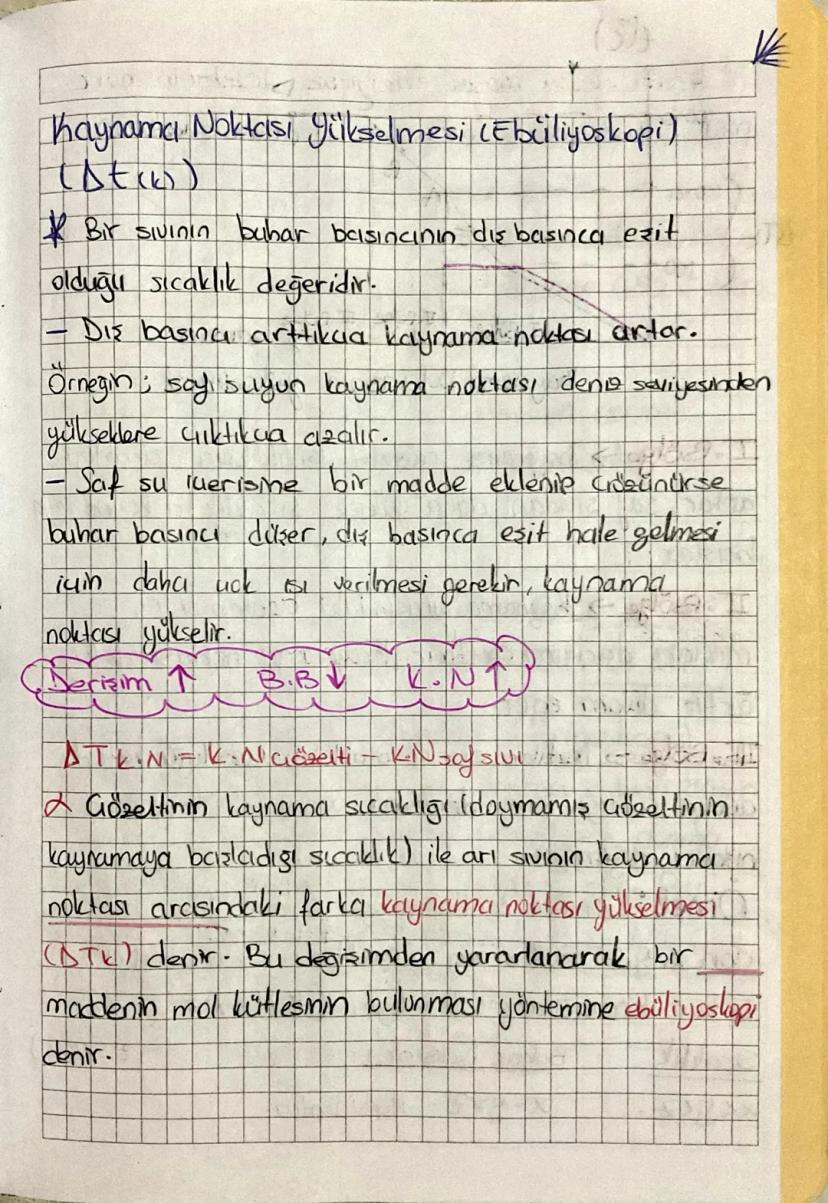 Kaynama Noktası Yükselmesi (Ebüliyoskopi)
(Δt(k))
* Bir sıvının buhar basıncının dış basınca eşit
olduğu sıcaklık değeridir.
– Dış basınç arttıkça kaynama noktası artar.
Örneğin; saf suyun kaynama noktası deniz seviyesinden
yükseklere çıktıkça azalır.
– Saf su içerisine bir madde eklenip çözünürse
buhar basıncı düşer, dış basınca eşit hale gelmesi
için daha çok ısı verilmesi gerekir, kaynama
noktası yükselir.
Derişim ↑ B.B↓ K.N↑
ΔT K.N = K.N çözelti – KN saf sıvı
α Çözeltinin kaynama sıcaklığı (doymamış çözeltinin
kaynamaya başladığı sıcaklık) ile arı sıvının kaynama
noktası arasındaki farka kaynama noktası yükselmesi
(ΔTk) denir. Bu değişimden yararlanarak bir
maddenin mol kütlesinin bulunması yöntemine ebüliyoskopi
denir.